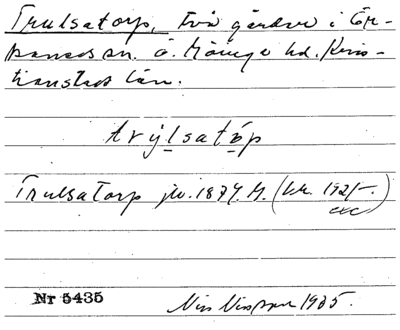 Trulsatorp, två gårdar i Ör-
kaneds sn. ö. Göinge hd. Kris-
tianstads län.
Trulsatorp jb. 1874. M. (kr. 192/-.)
Nr 5435
Nils Nilsson 1935.